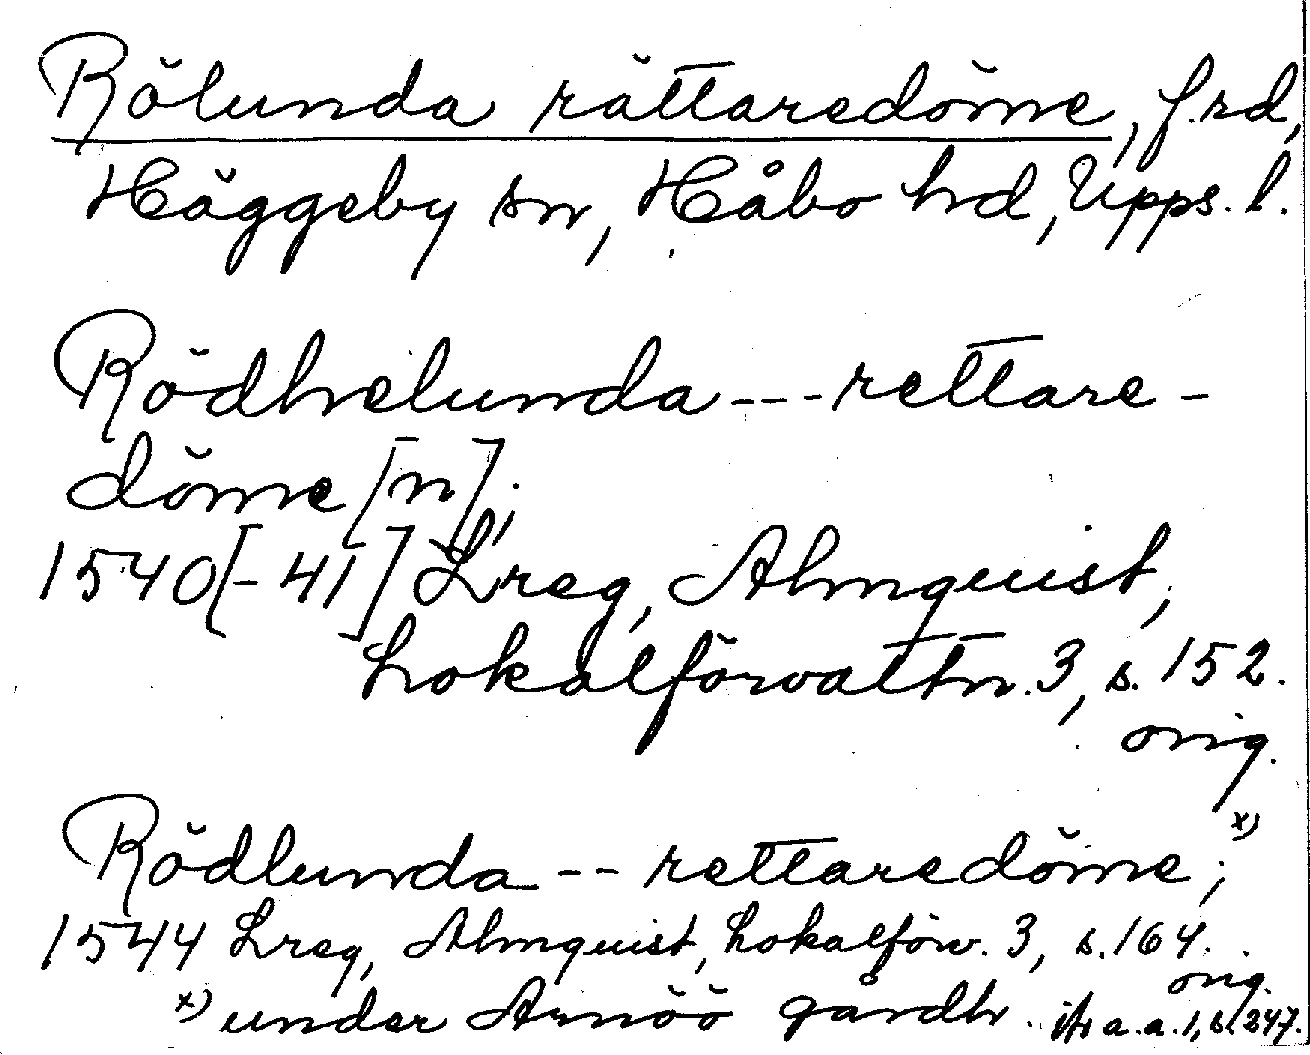 Rölunda rättaredöme, f.rd,
Häggeby sn, Håbo hd, Upps. l.
Rödhelunda --- rettare-
döme [n];
1540[-41] Lreg, Almquist,
Lokalförvaltn. 3, s. 152.
orig.
Rödlunda -- rettaredöme; x)
1544 Lreg, Almquist, Lokalförv. 3, s. 164.
orig.
x) under Arnöö gårdh. a.a. 1, s. 247.